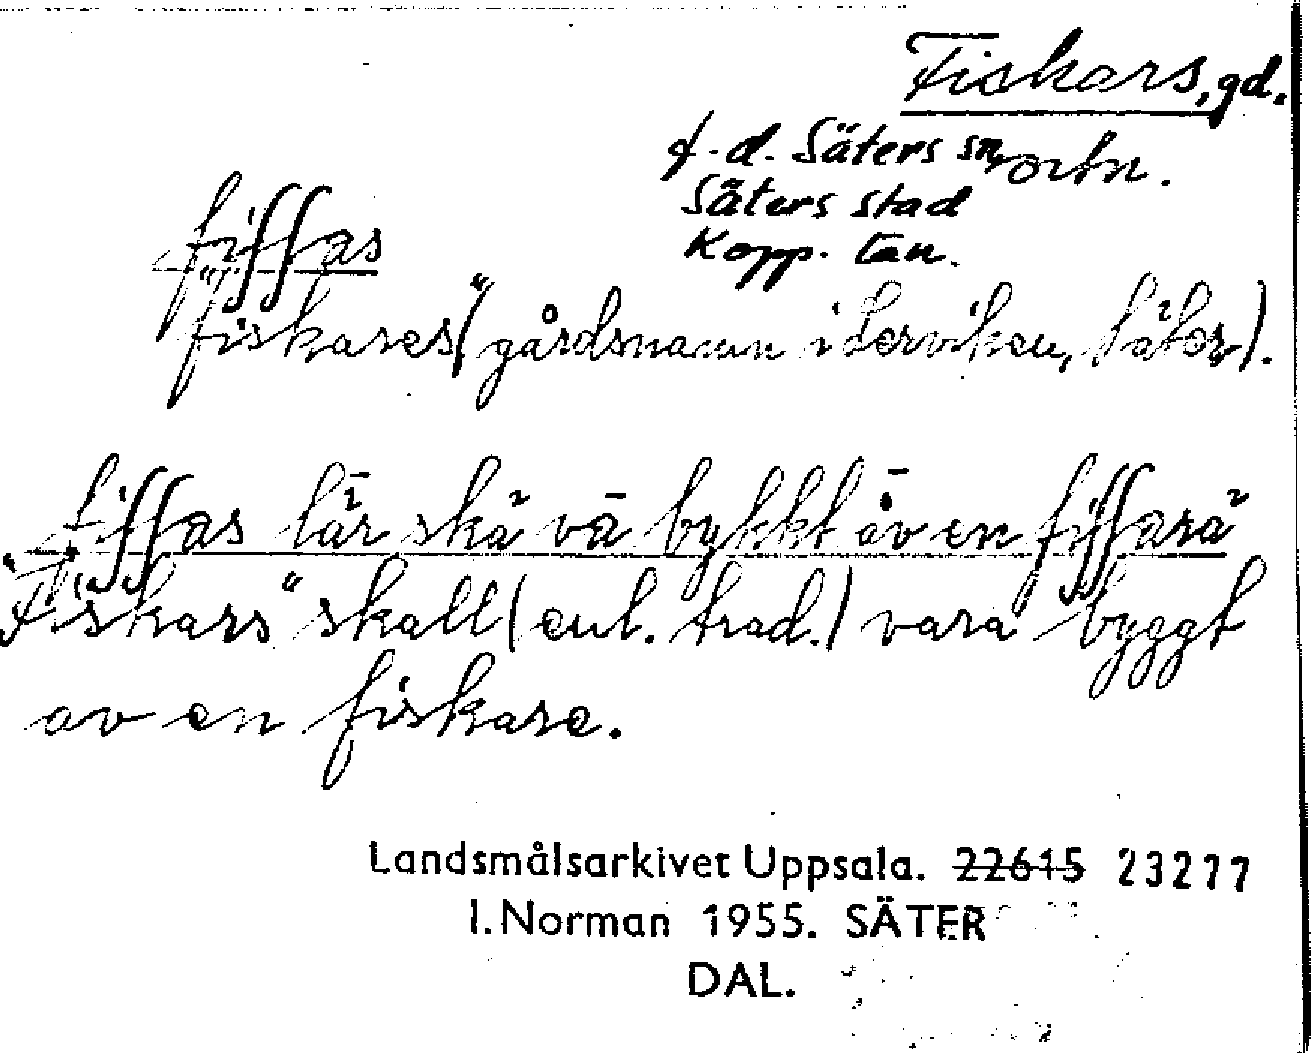 Fiskars, gd.
f.d. Säters sn, ortn.
Säters stad
Kopp. län.
fiʃʃas
"fiskares" (gårdsnamn i Lerviken, Säter).
fiʃʃas lär skä vā bykkt åv en fiʃʃarä
"Fiskars" skall (enl. trad.) vara byggt
av en fiskare.
Landsmålsarkivet Uppsala. 22615 23277
I. Norman 1955. SÄTER
DAL.